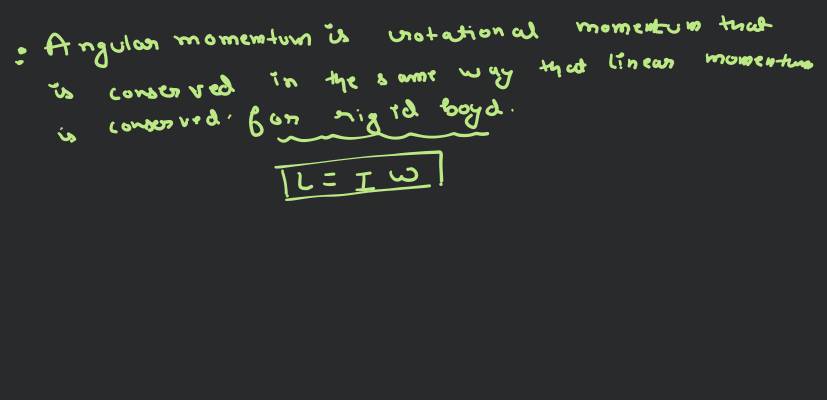 : Angular momemtum is rotational momentum that
is conserved in the same way that linear momentum
is conserved. for rigid boyd.
L = I ω